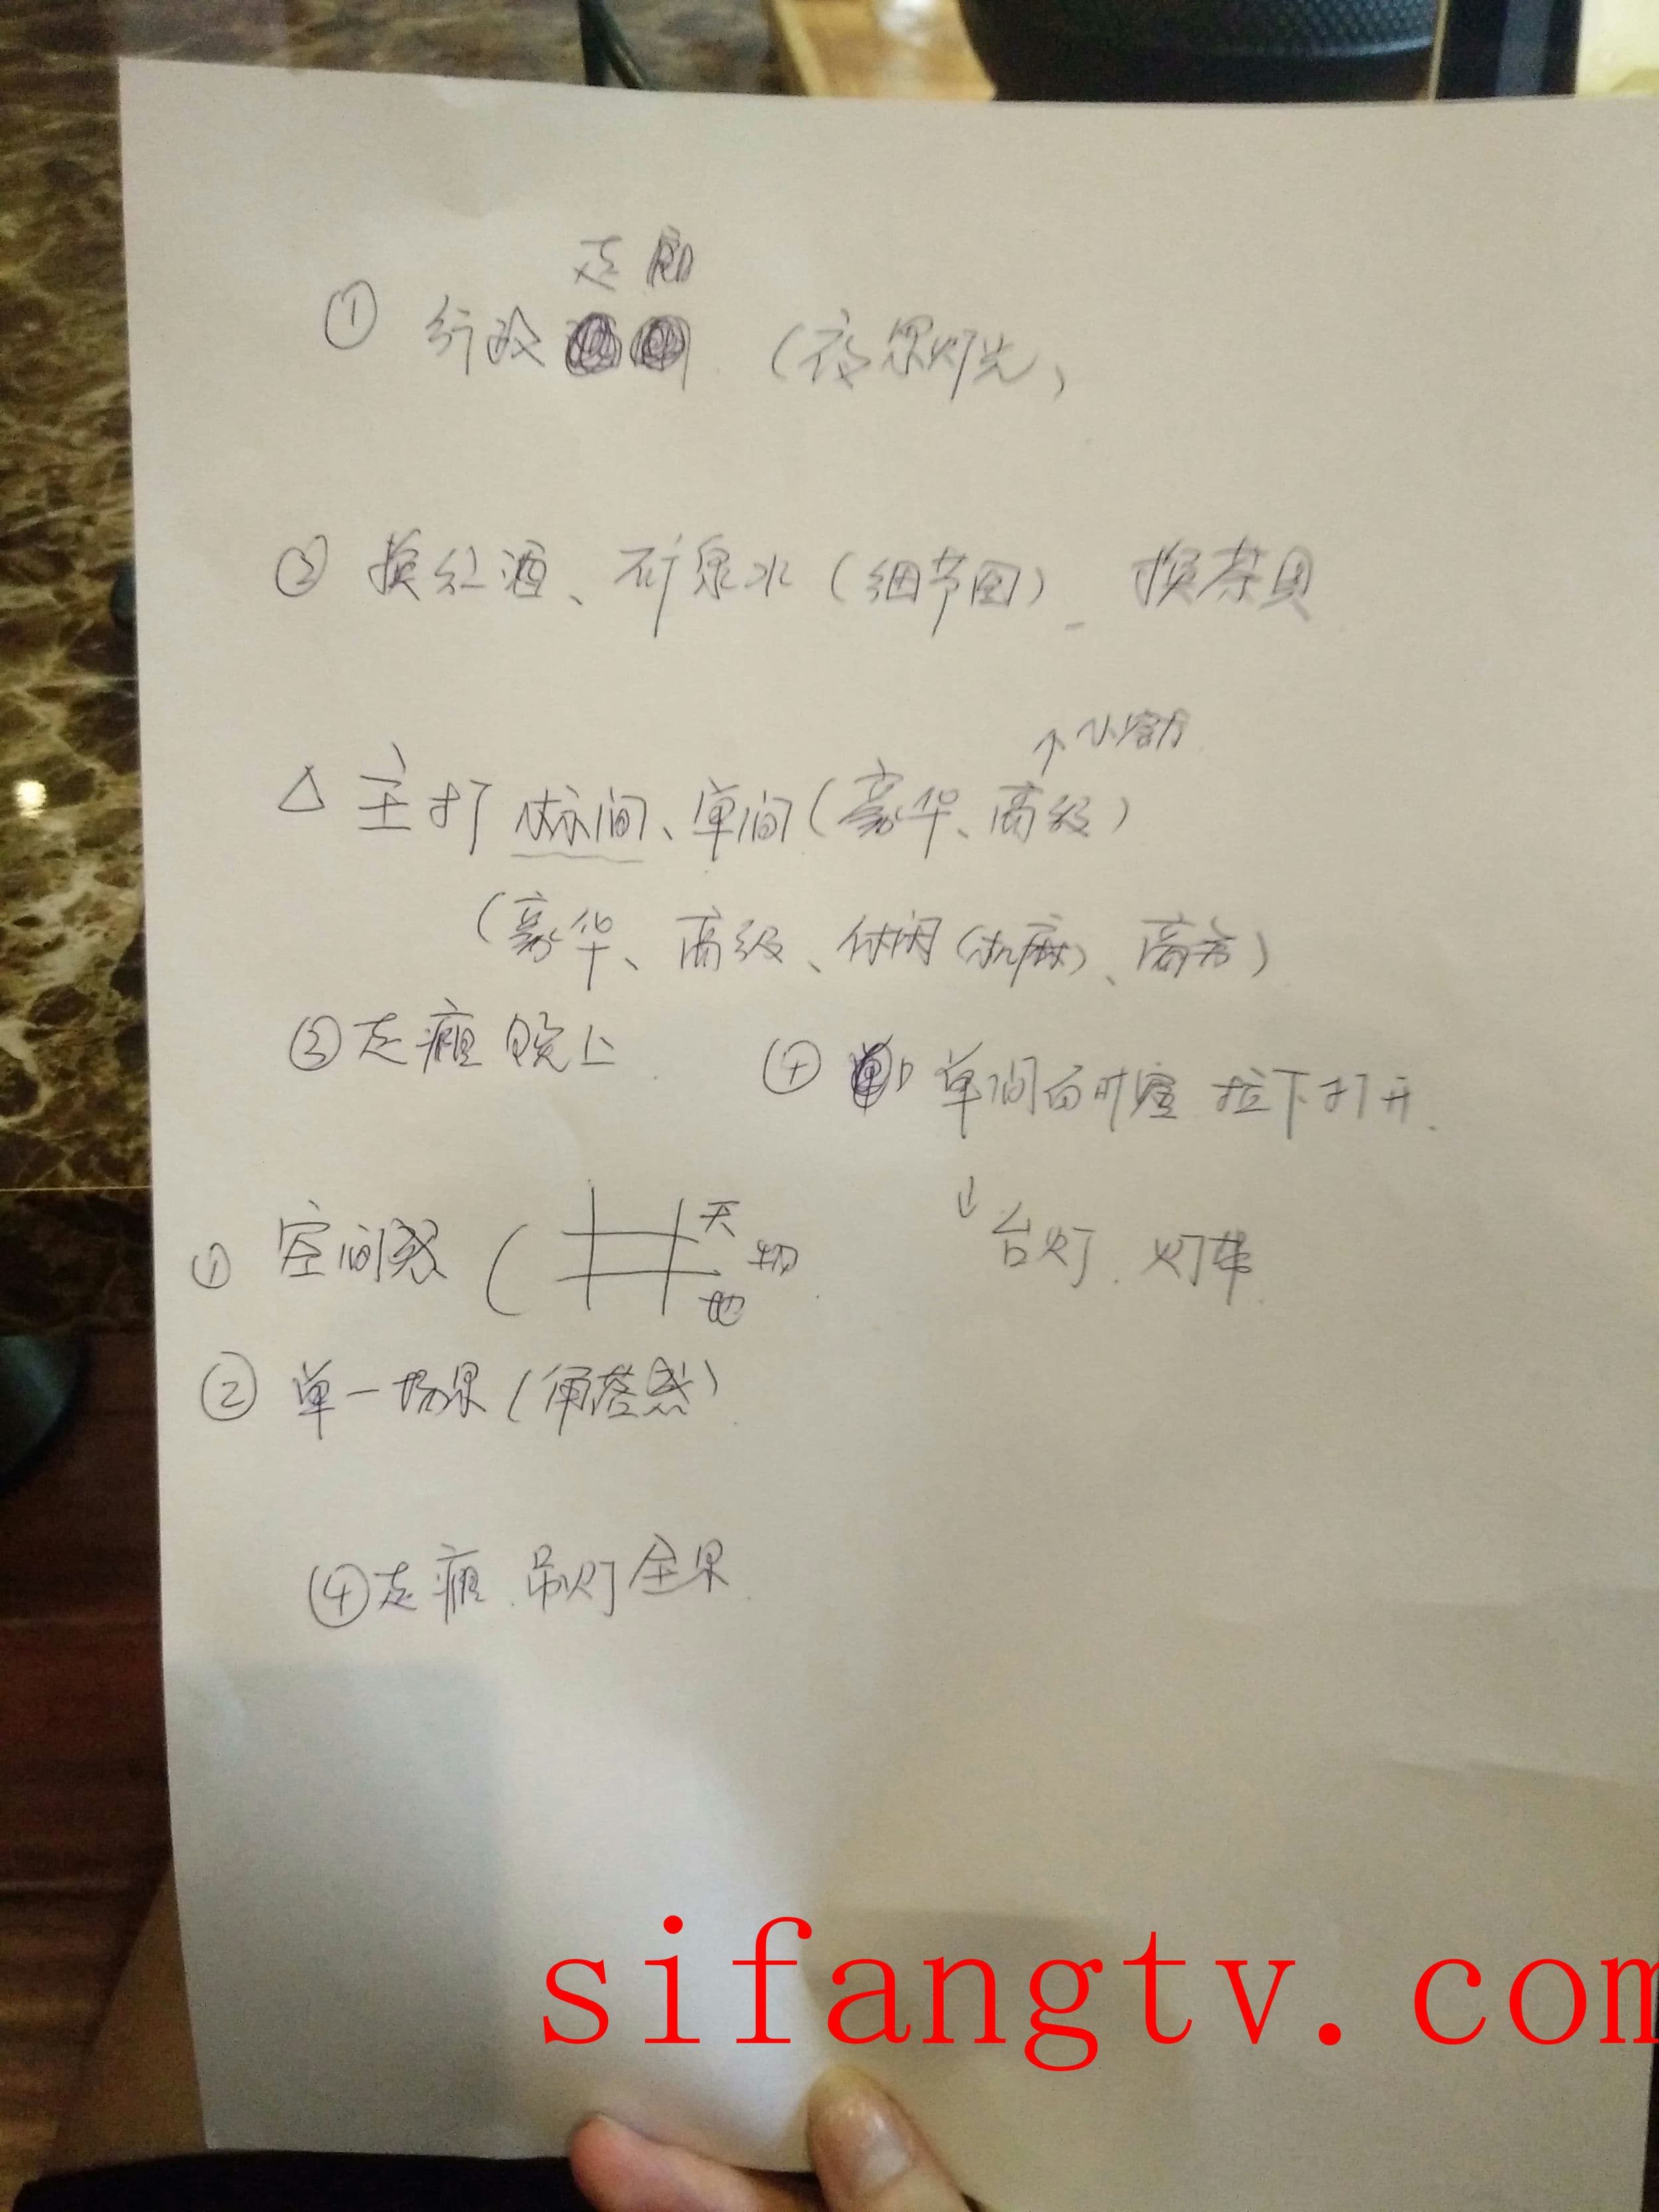 走廊
① 行政 (夜景灯光)
② 换红酒、矿泉水(细节图) 换茶具
↑小客厅
△ 主打 标间、单间(豪华、高级)
(豪华、高级、休闲(机麻)、商务)
③走廊 晚上
④ 单间 拉下打开.
↓台灯. 灯带.
① 空间感 ( 天 物 地
② 单一场景(角落感)
④走廊.吊灯全景.
sifangtv.com